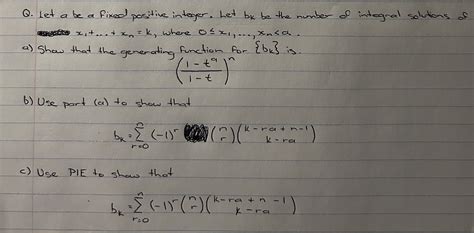 Q. Let a be a fixed positive integer. Let bk be the number of integral solutions of
x₁+...+xₙ=k, where 0≤x₁,...,xₙ<a.
a) Show that the generating function for {bk} is
((1-tᵃ)/(1-t))ⁿ
b) Use part (a) to show that
bk=∑ⁿᵣ₌₀(-1)ʳ(n r)(k-ra+n-1 k-ra)
c) Use PIE to show that
bk=∑ⁿᵣ₌₀(-1)ʳ(n r)(k-ra+n-1 k-ra)